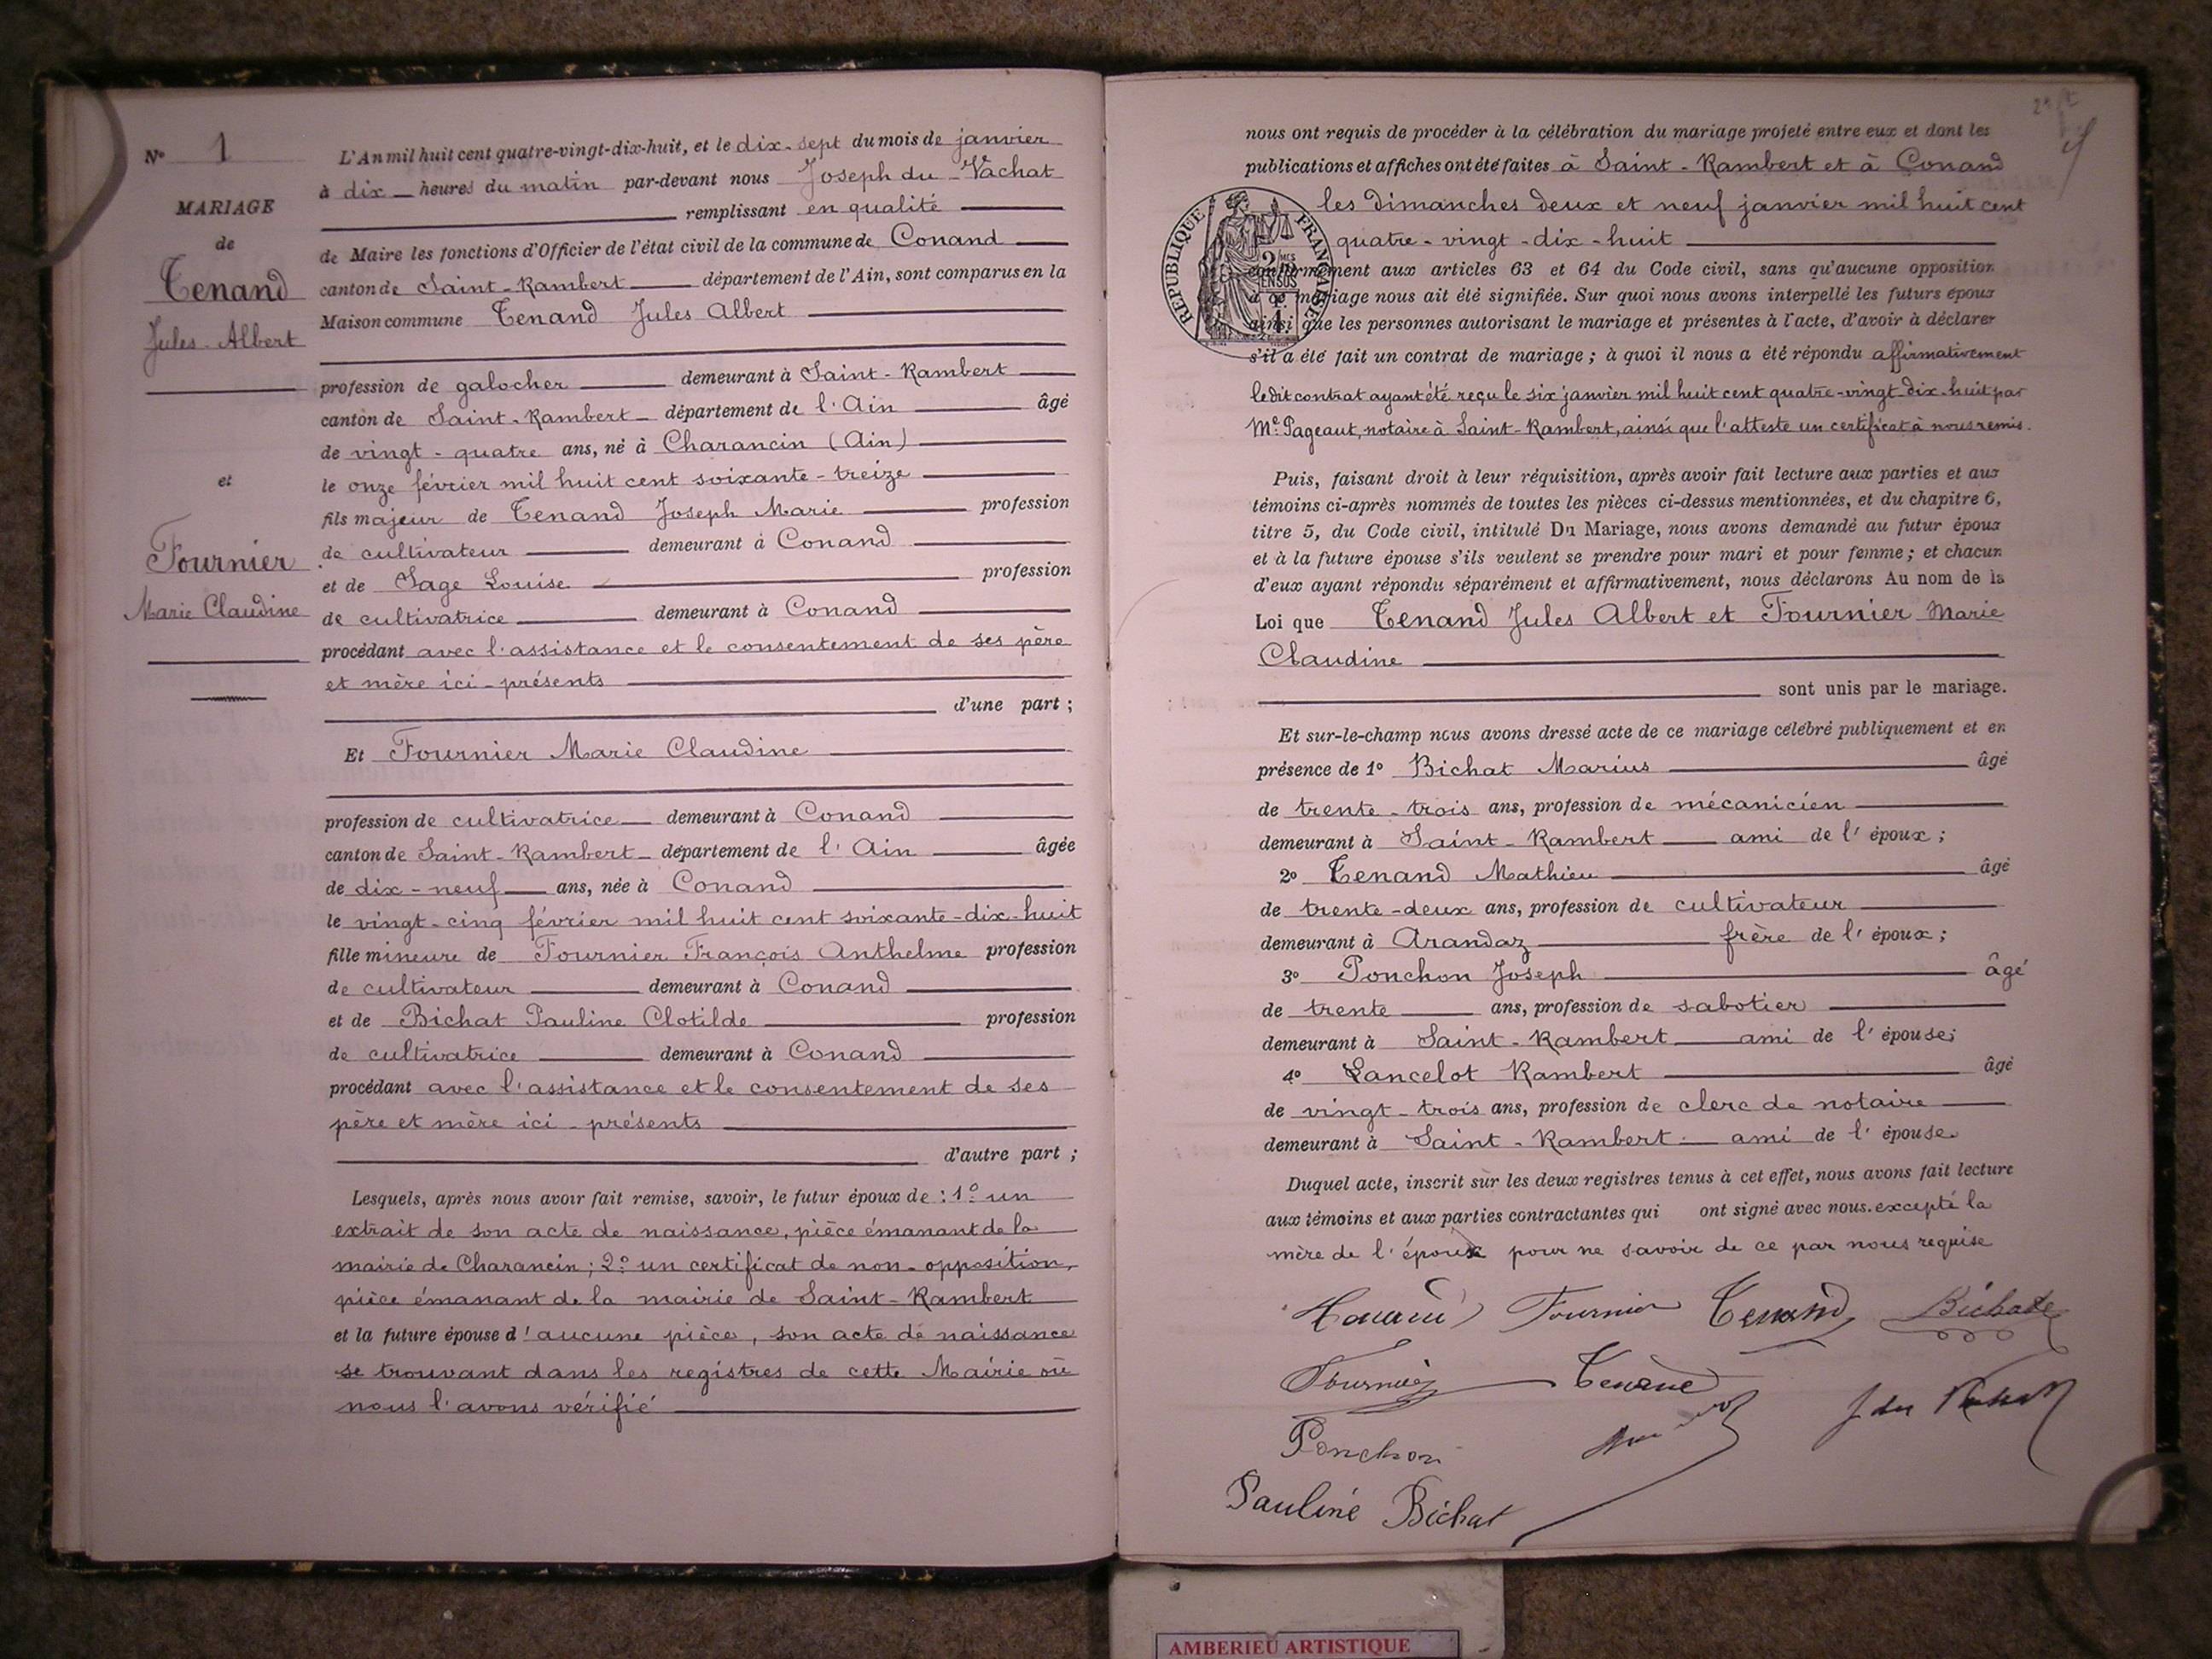 N° 1
MARIAGE
de
Tenand
Jules Albert
et
Fournier
Marie Claudine
L'An mil huit cent quatre-vingt-dix-huit, et le dix-sept du mois de janvier
à dix heures du matin par-devant nous Joseph du Vachat
remplissant en qualité
de Maire les fonctions d'Officier de l'état civil de la commune de Conand
canton de Saint-Rambert département de l'Ain, sont comparus en la
Maison commune Tenand Jules Albert
profession de galocher demeurant à Saint-Rambert
canton de Saint-Rambert département de l'Ain âgé
de vingt-quatre ans, né à Charancin (Ain)
le onze février mil huit cent soixante-treize
fils majeur de Tenand Joseph Marie profession
de cultivateur demeurant à Conand
et de Sage Louise profession
de cultivatrice demeurant à Conand
procédant avec l'assistance et le consentement de ses père
et mère ici-présents
d'une part ;
Et Fournier Marie Claudine
profession de cultivatrice demeurant à Conand
canton de Saint-Rambert département de l'Ain âgée
de dix-neuf ans, née à Conand
le vingt-cinq février mil huit cent soixante-dix-huit
fille mineure de Fournier François Anthelme profession
de cultivateur demeurant à Conand
et de Bichat Pauline Clotilde profession
de cultivatrice demeurant à Conand
procédant avec l'assistance et le consentement de ses
père et mère ici-présents
d'autre part ;
Lesquels, après nous avoir fait remise, savoir, le futur époux de : 1° un
extrait de son acte de naissance, pièce émanant de la
mairie de Charancin ; 2° un certificat de non-opposition,
pièce émanant de la mairie de Saint-Rambert
et la future épouse d'aucune pièce, son acte de naissance
se trouvant dans les registres de cette Mairie où
nous l'avons vérifié
nous ont requis de procéder à la célébration du mariage projeté entre eux et dont les
publications et affiches ont été faites à Saint-Rambert et à Conand
les dimanches deux et neuf janvier mil huit cent
quatre-vingt-dix-huit
REPUBLIQUE FRANÇAISE
conformément aux articles 63 et 64 du Code civil, sans qu'aucune opposition
à ce mariage nous ait été signifiée. Sur quoi nous avons interpellé les futurs époux
ainsi que les personnes autorisant le mariage et présentes à l'acte, d'avoir à déclarer
s'il a été fait un contrat de mariage ; à quoi il nous a été répondu affirmativement
ledit contrat ayant été reçu le six janvier mil huit cent quatre-vingt-dix-huit par
Me Pageaut, notaire à Saint-Rambert, ainsi que l'atteste un certificat à nous remis.
Puis, faisant droit à leur réquisition, après avoir fait lecture aux parties et aux
témoins ci-après nommés de toutes les pièces ci-dessus mentionnées, et du chapitre 6,
titre 5, du Code civil, intitulé Du Mariage, nous avons demandé au futur époux
et à la future épouse s'ils veulent se prendre pour mari et pour femme ; et chacun
d'eux ayant répondu séparément et affirmativement, nous déclarons Au nom de la
Loi que Tenand Jules Albert et Fournier Marie
Claudine
sont unis par le mariage.
Et sur-le-champ nous avons dressé acte de ce mariage célébré publiquement et en
présence de 1° Bichat Marius âgé
de trente-trois ans, profession de mécanicien
demeurant à Saint-Rambert ami de l'époux ;
2° Tenand Mathieu âgé
de trente-deux ans, profession de cultivateur
demeurant à Arandaz frère de l'époux ;
3° Ponchon Joseph âgé
de trente ans, profession de sabotier
demeurant à Saint-Rambert ami de l'épouse ;
4° Lancelot Rambert âgé
de vingt-trois ans, profession de clerc de notaire
demeurant à Saint-Rambert ami de l'épouse
Duquel acte, inscrit sur les deux registres tenus à cet effet, nous avons fait lecture
aux témoins et aux parties contractantes qui ont signé avec nous. excepté la
mère de l'époux pour ne savoir de ce par nous requise
Fournier Tenand
Fournier Tenand
Ponchon
Pauline Bichat
AMBERIEU ARTISTIQUE